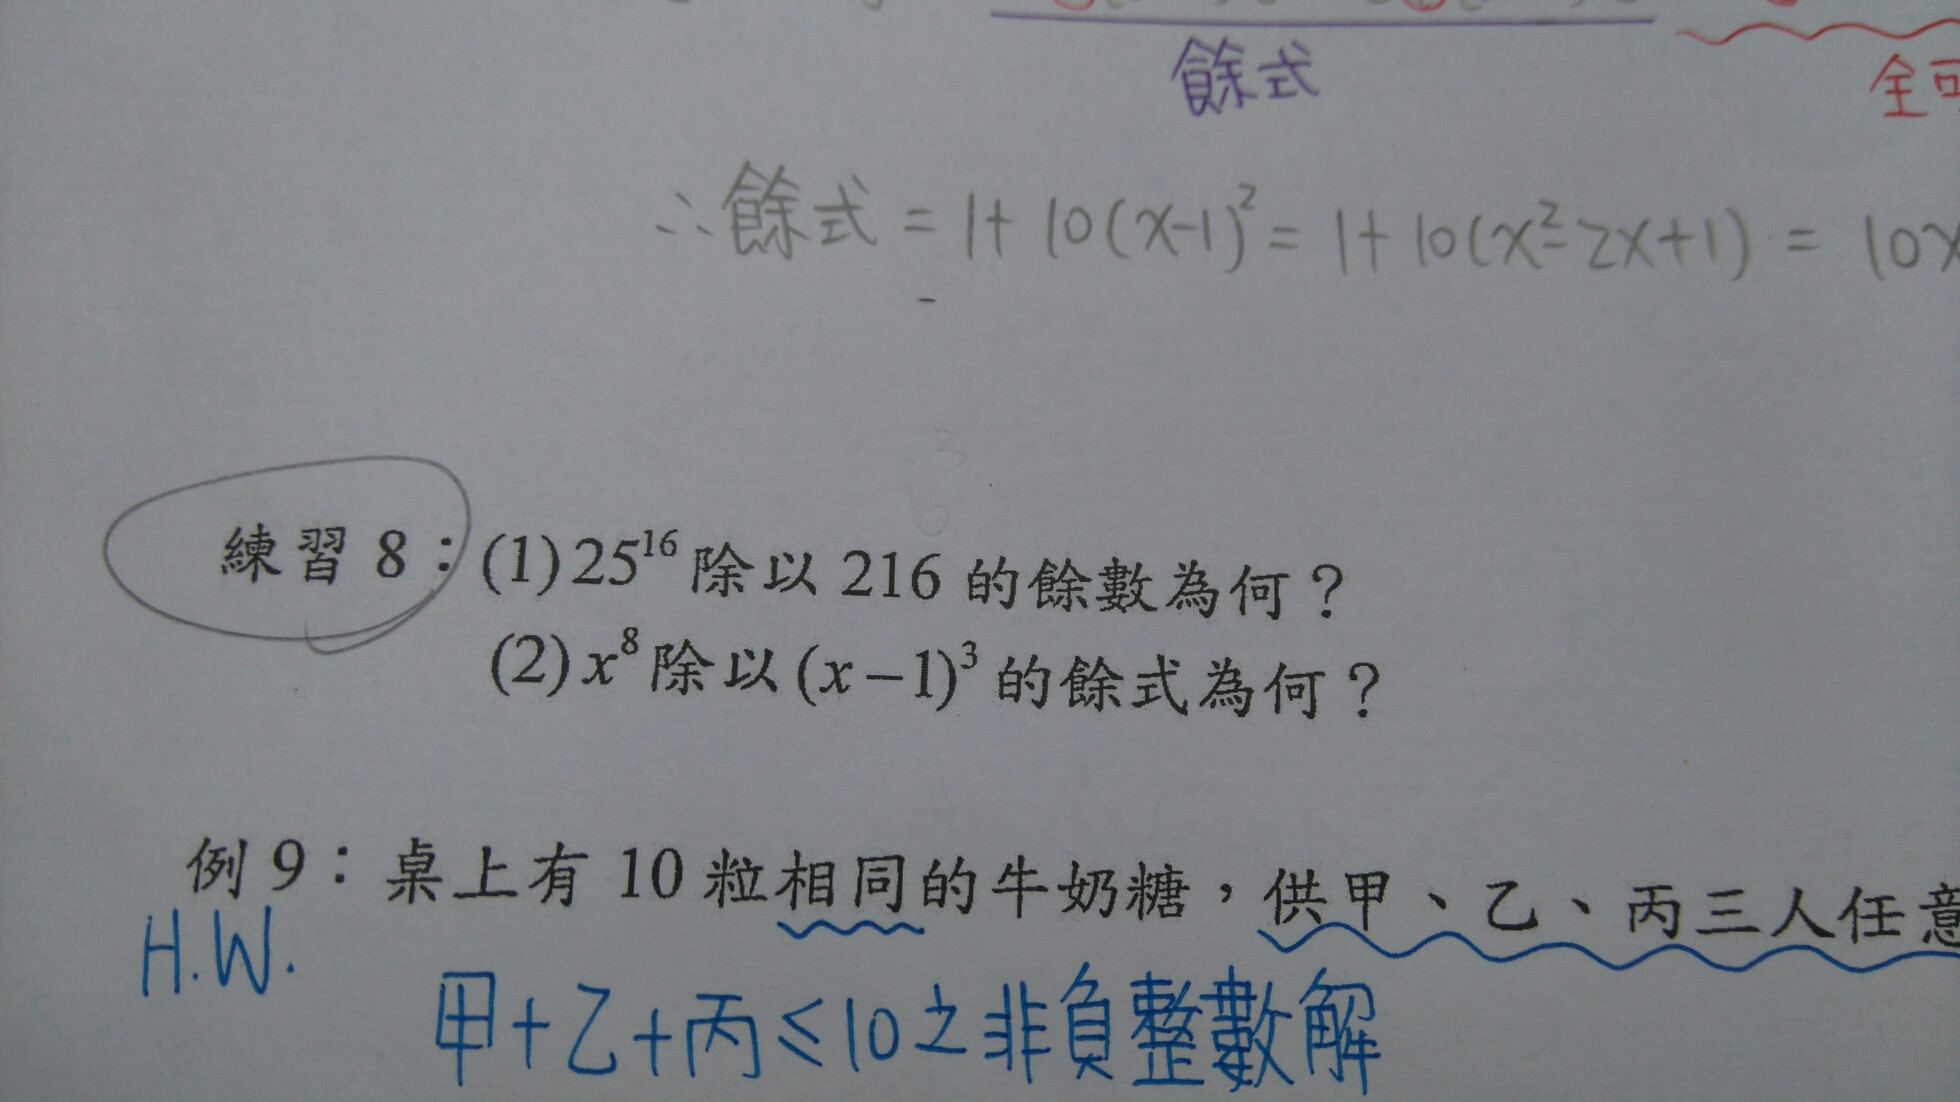 餘式
全可
∴餘式 = 1+10(x-1)² = 1+10(x²-2x+1) = 10x
練習 8：(1) 25¹⁶ 除以 216 的餘數為何？
(2) x⁸ 除以 (x－1)³ 的餘式為何？
例 9：桌上有 10 粒相同的牛奶糖，供甲、乙、丙三人任意
H.W.
甲+乙+丙≤10之非負整數解